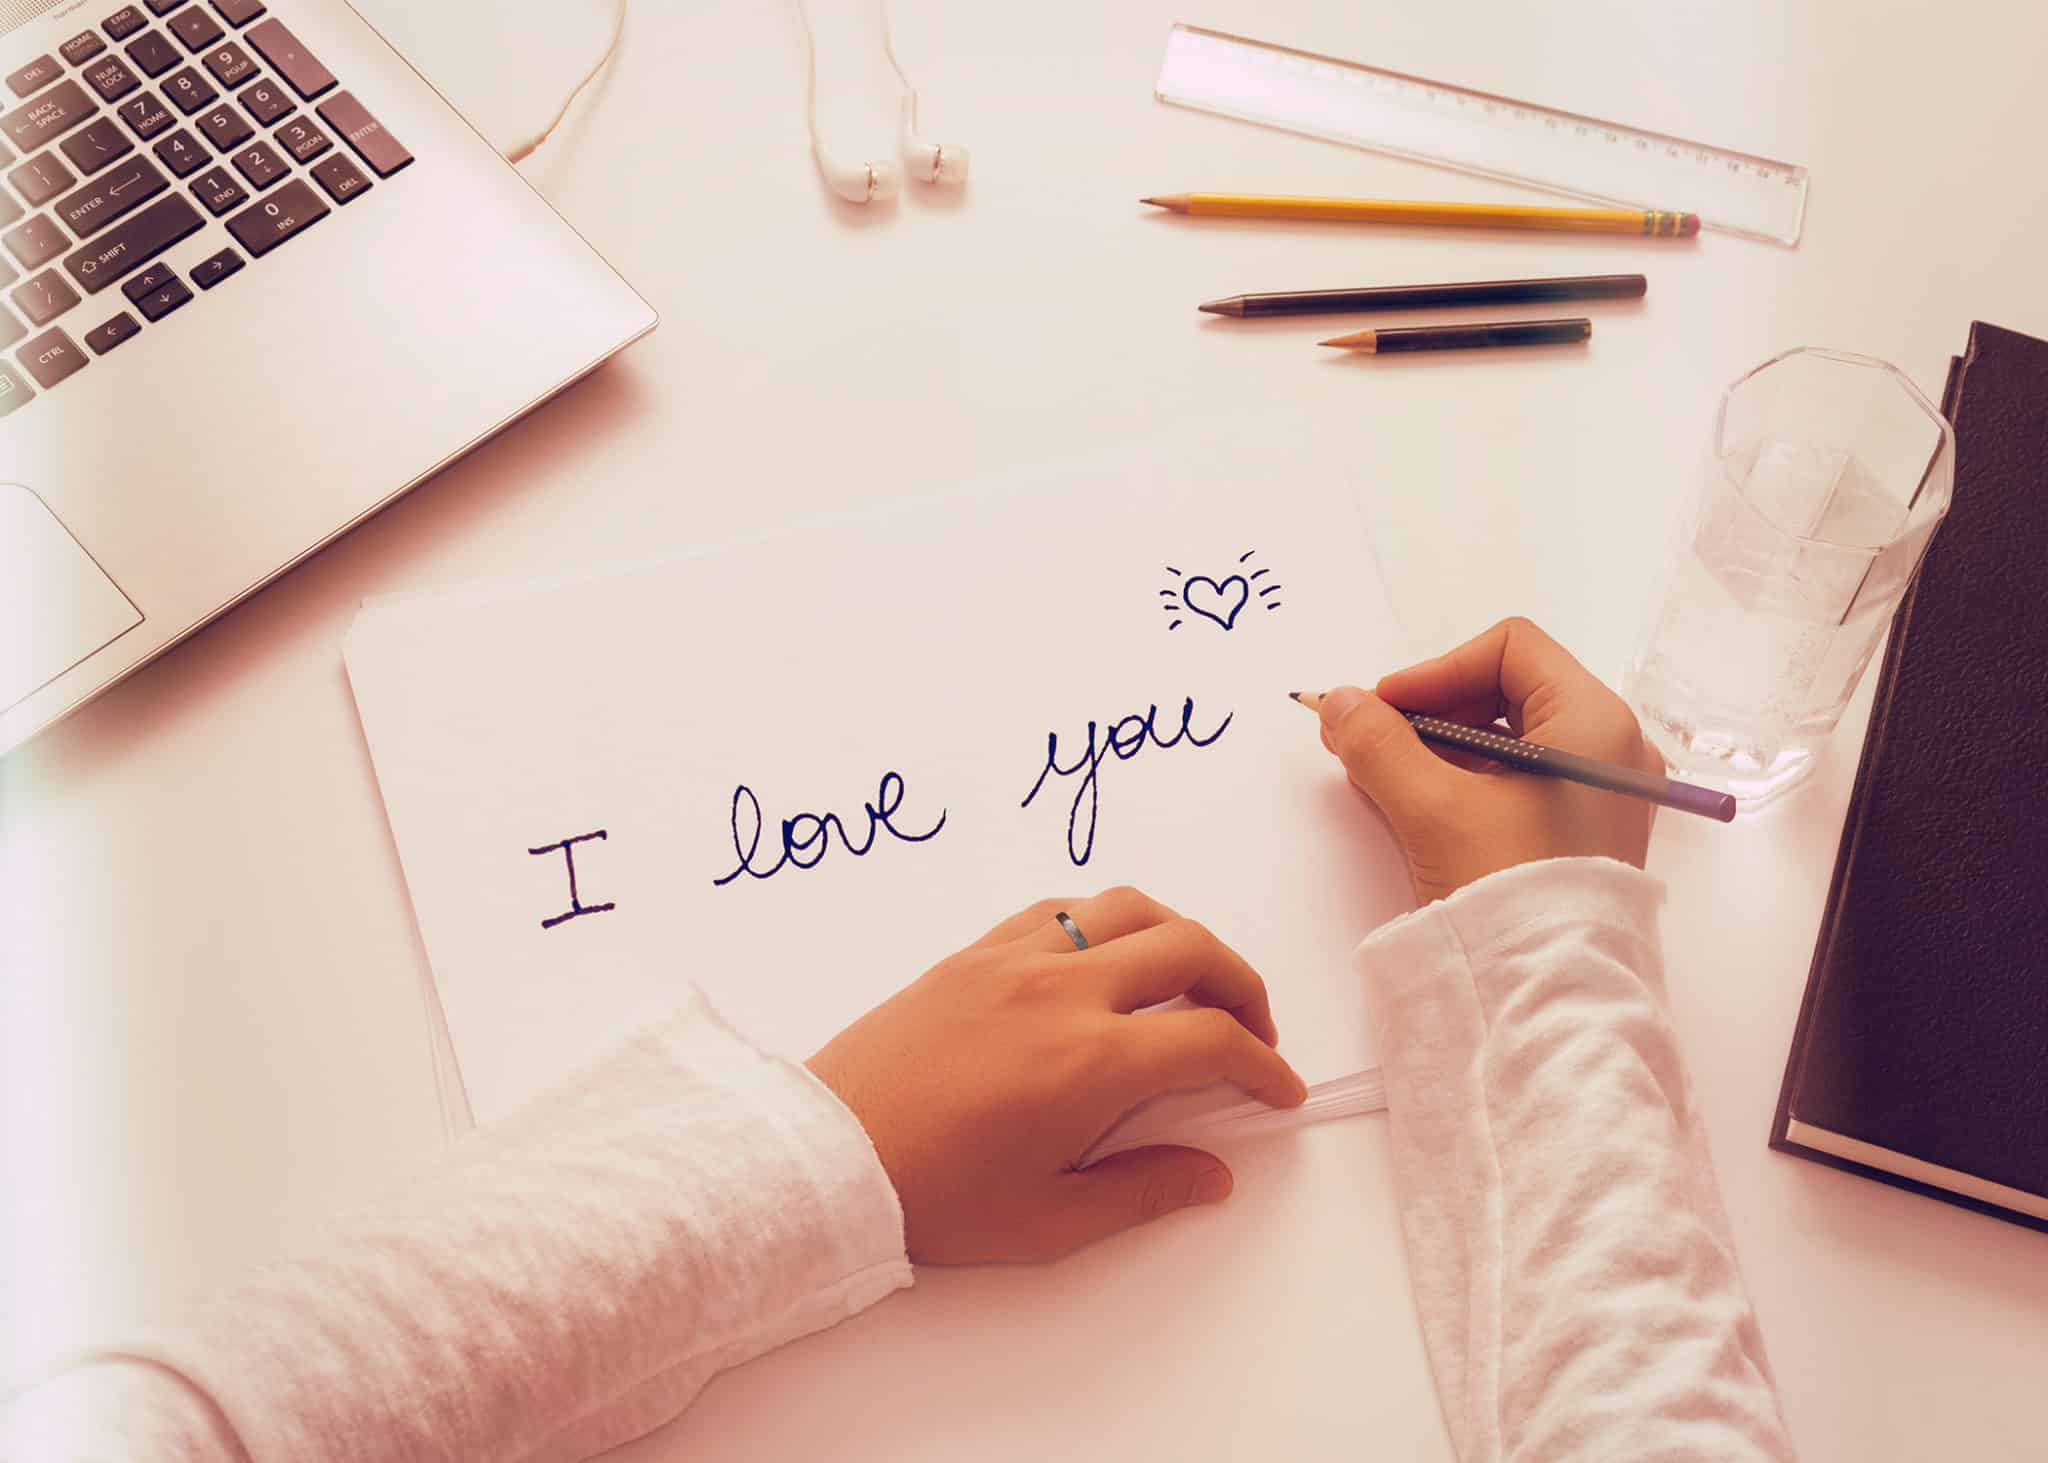 harman
END
HOME
DEL
NUM LOCK
/
*
BACK SPACE
7 HOME
8
9 PGUP
\
4
5
6
ENTER
ENTER
1 END
2
3 PGDN
SHIFT
0 INS
. DEL
? /
CTRL
I love you